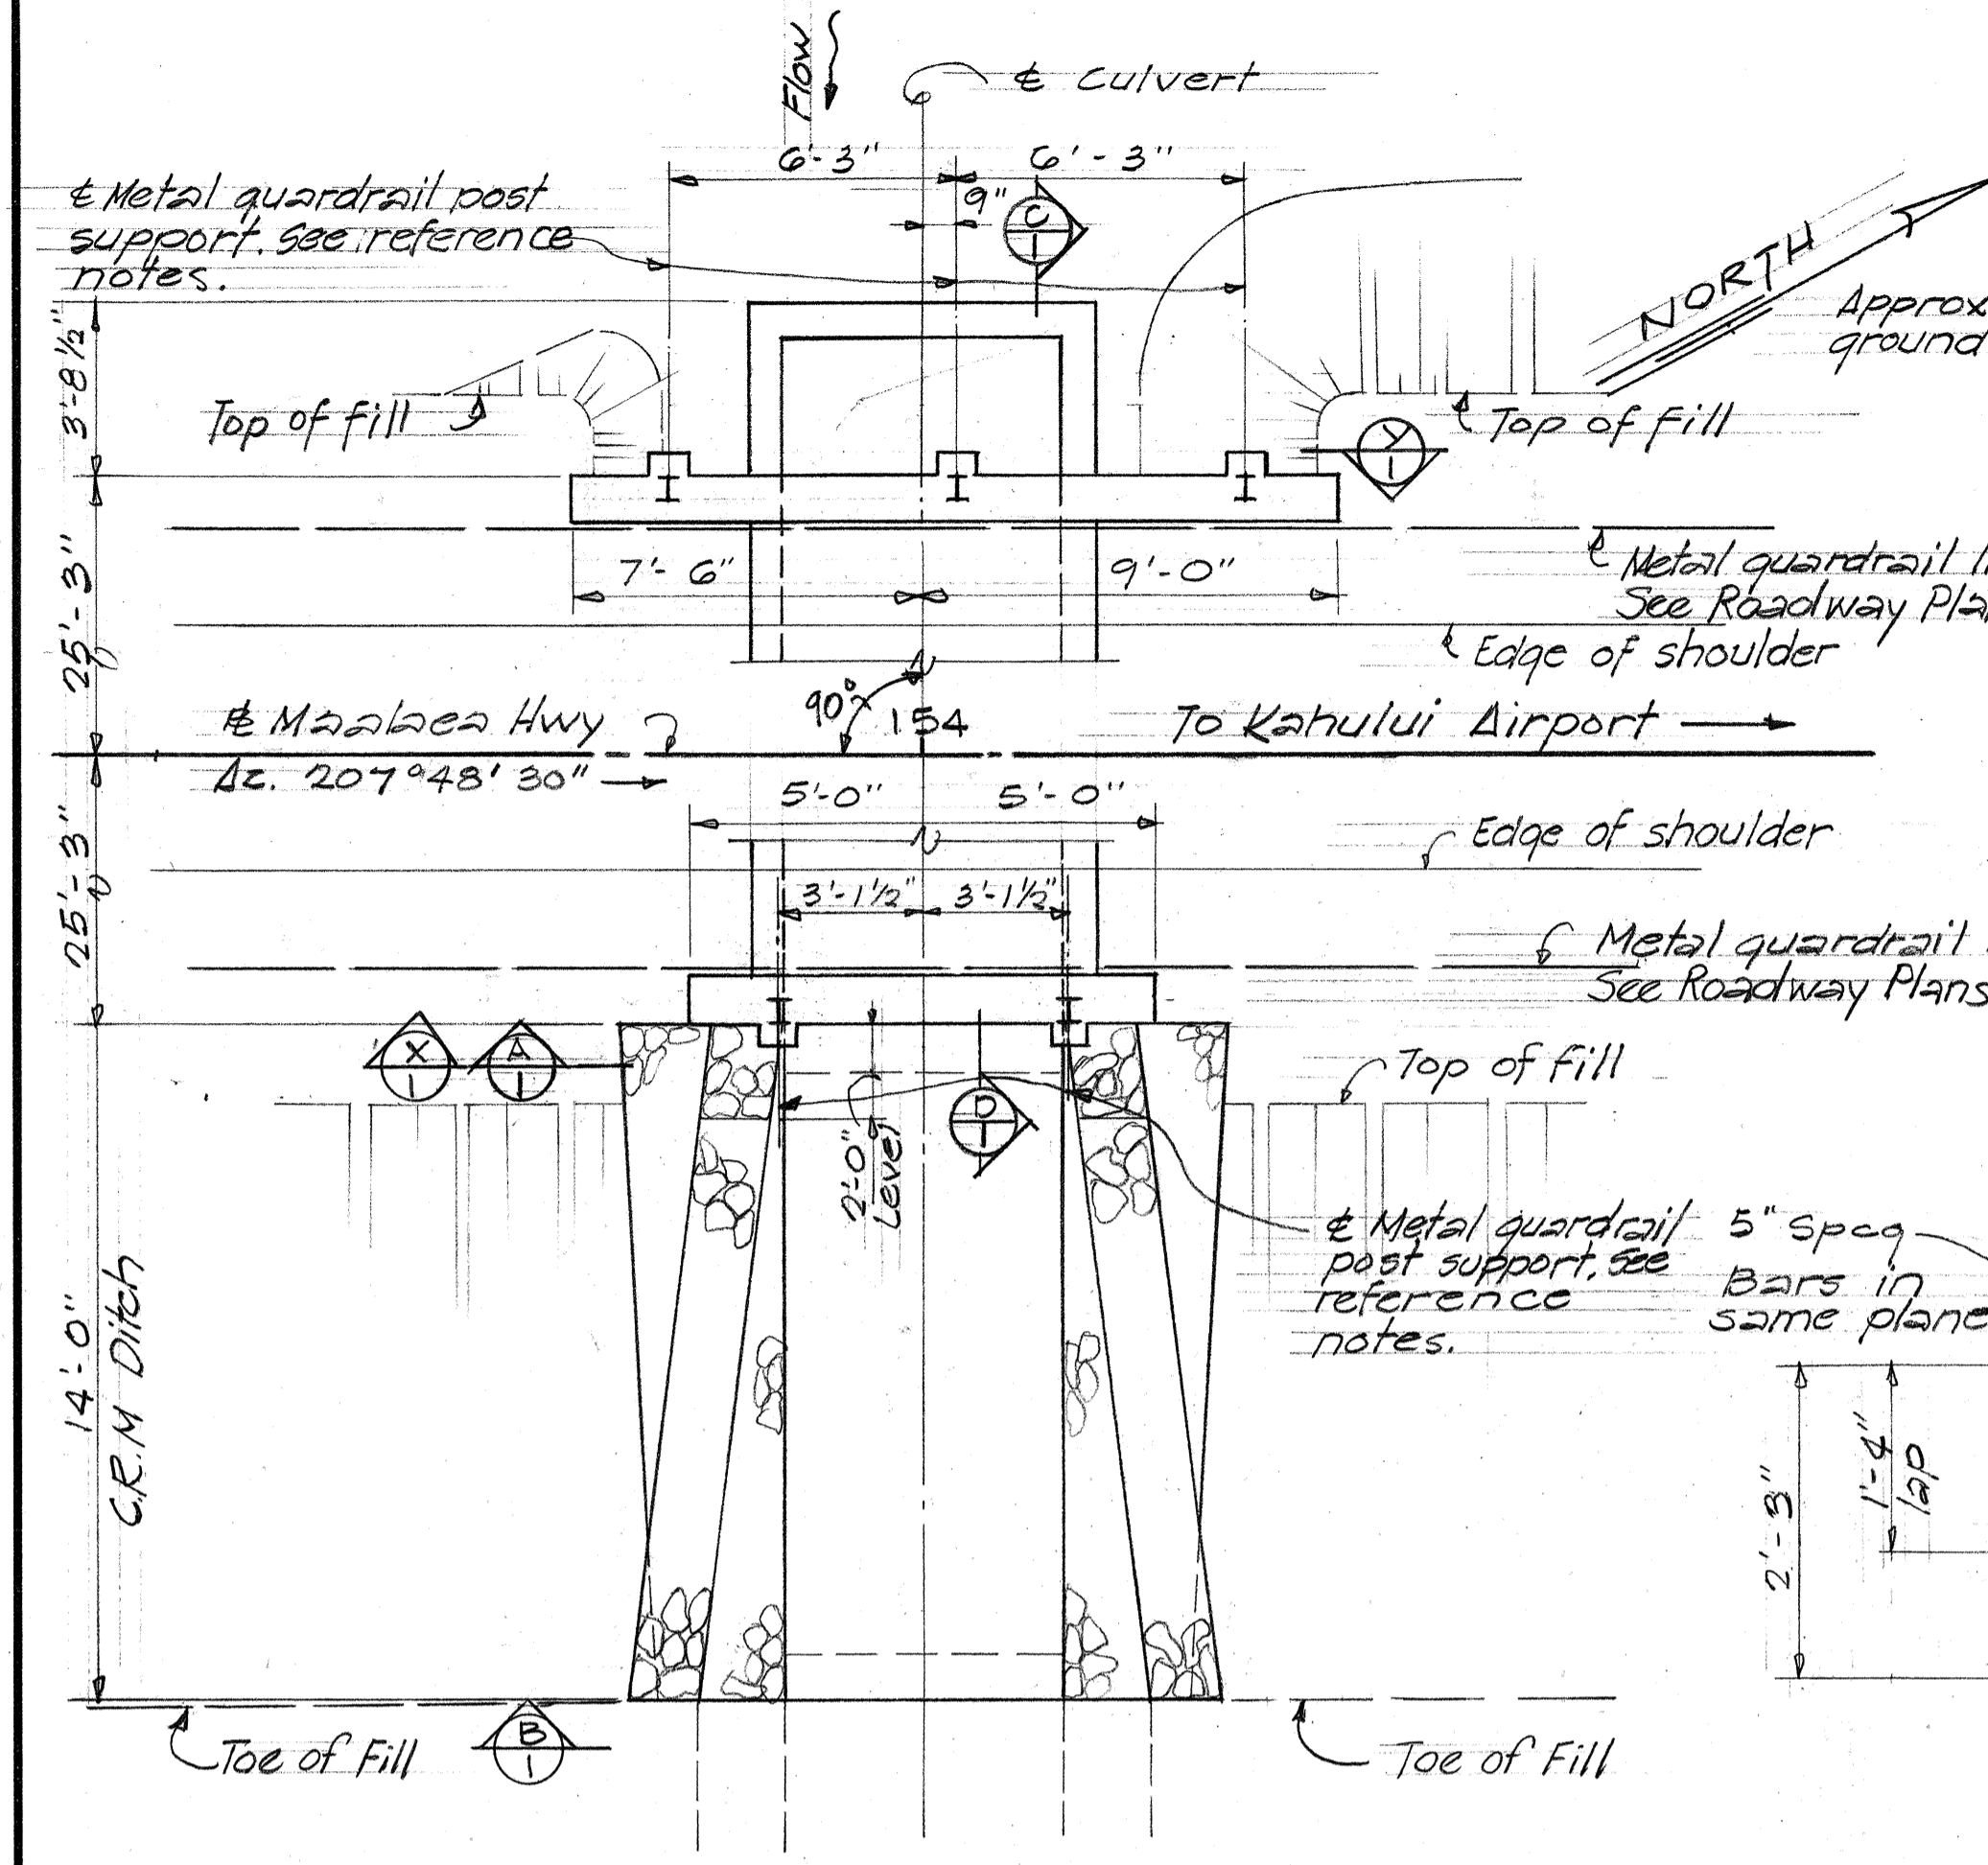 Flow
℄ Culvert
6'-3"
6'-3"
9"
C
1
℄ Metal guardrail post
support. See reference
notes.
NORTH
Approx
ground
3'-8½"
Top of fill
Top of fill
Y
1
7'-6"
9'-0"
Metal guardrail
See Roadway
25'-3"
Edge of shoulder
90°
℄ Maalaea Hwy
154
To Kahului Airport
Az. 207°48'30"
5'-0"
5'-0"
Edge of shoulder
25'-3"
3'-1½"
3'-1½"
Metal guardrail
See Roadway Plans
X
1
A
1
Top of fill
D
1
2'-0"
Level
℄ Metal guardrail
post support. See
reference
notes.
5" Spcg
Bars in
same plane
14'-0"
C.R.M Ditch
2'-3"
1'-4"
lap
Toe of Fill
B
1
Toe of Fill